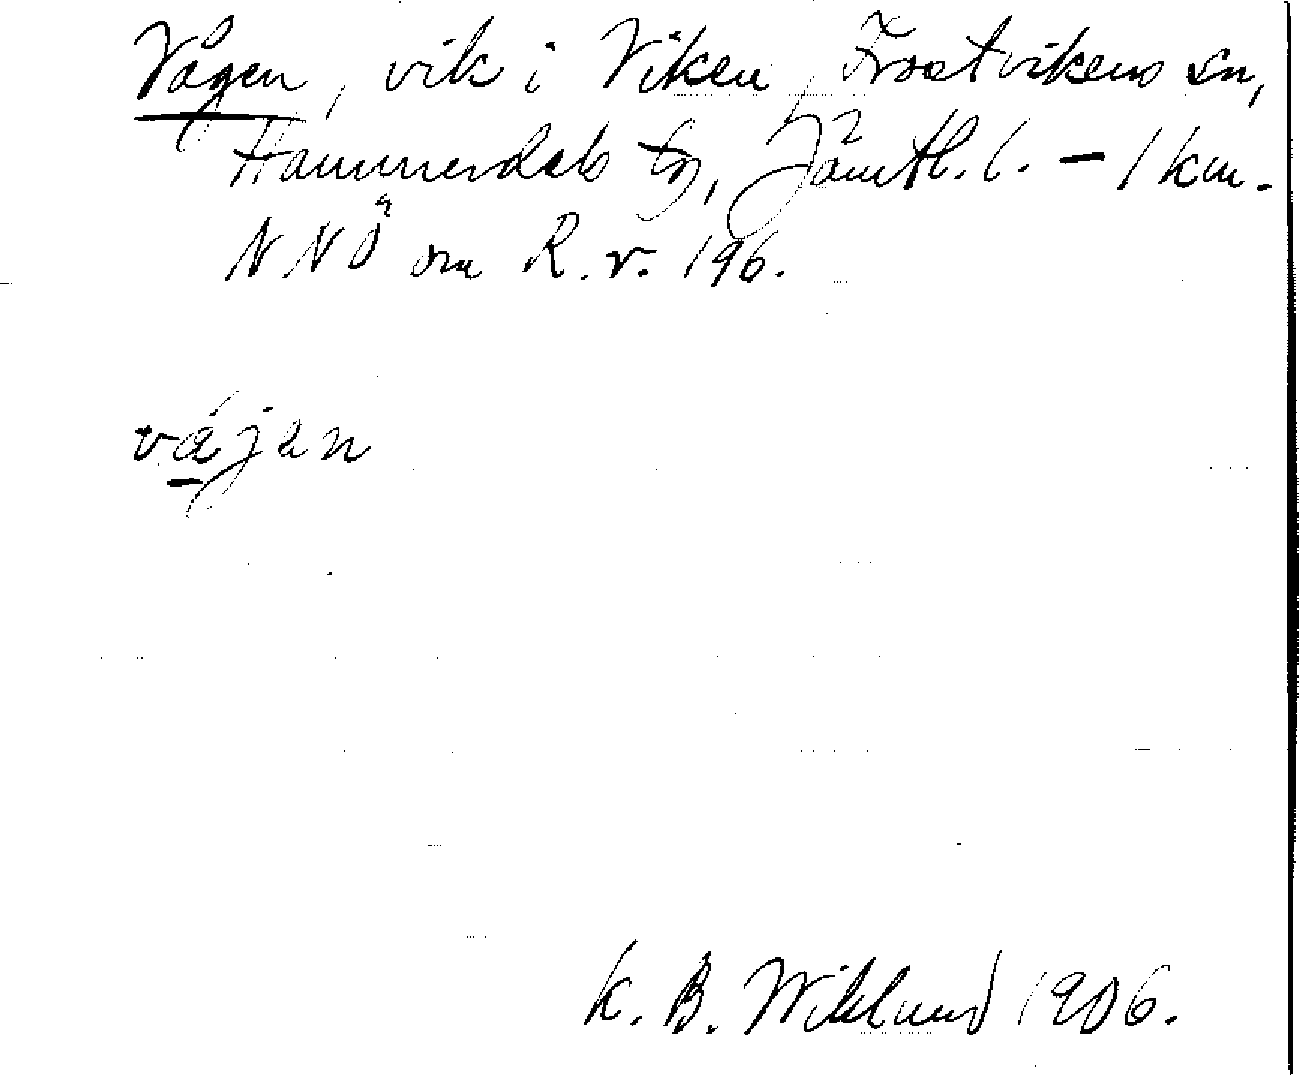 Vågen, vik i Viken, Frostvikens sn,
Hammerdals tg, Jämtl. l. – 1 km.
NNÖ om R. r. 196.
vájan
K. B. Wiklund 1906.